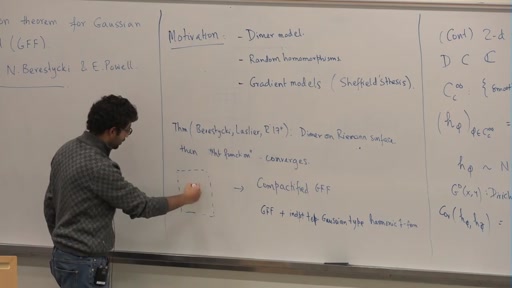 on theorem for Gaussian
(GFF)
N. Berestycki & E. Powell.
Motivation:
- Dimer model.
- Random homomorphisms
- Gradient models (Sheffield's thesis).
Thm (Berestycki, Laslier, R 17"): Dimer on Riemann surface
then "ht function" converges
→ Compactified GFF
GFF + indpt top Gaussian type harmonic 1-form
(Cont) 2-d
D ⊂ ℂ
C_c^∞ = {
(h_φ)_{φ∈C_c^∞}
h_φ ~ N
G^D(x,y): Dirich
Cov(h_φ, h_φ) =